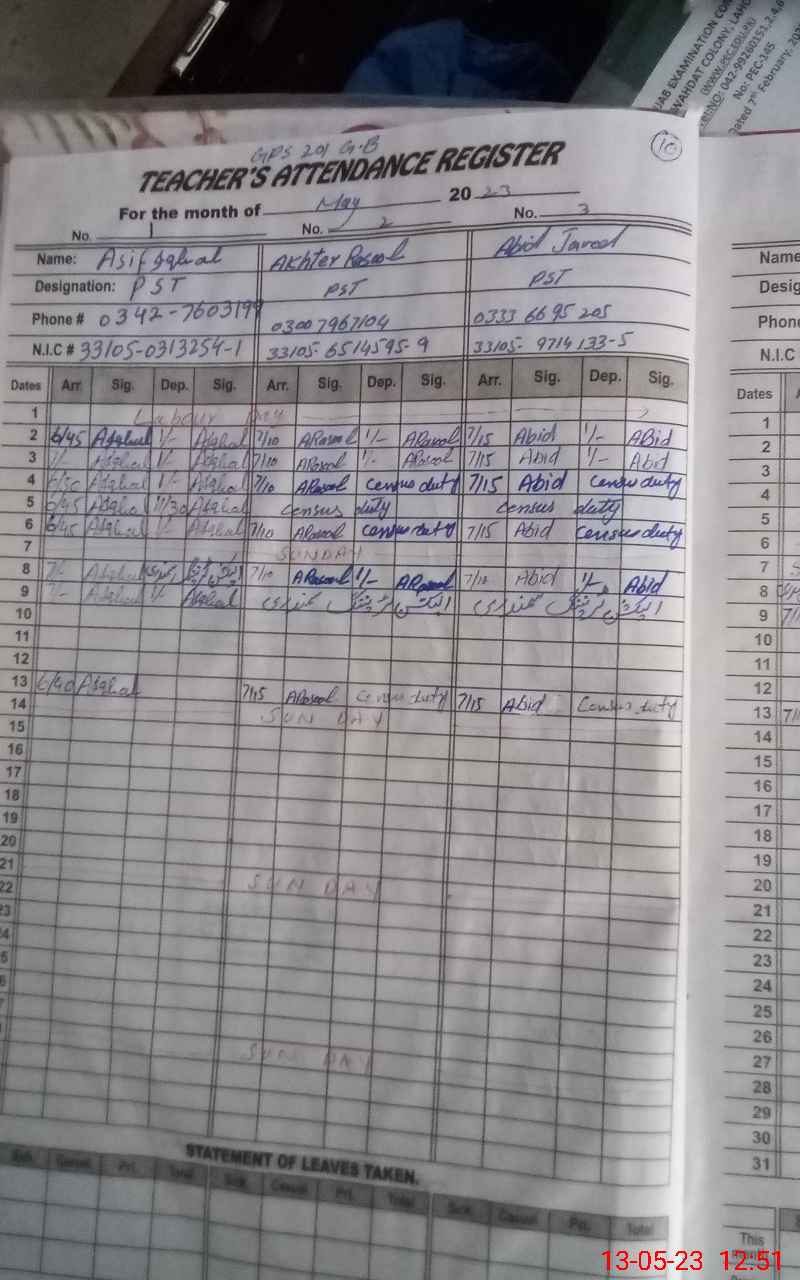 UAB EXAMINATION COM
WAHDAT COLONY, LAHO
(WWW.PEC.EDU.PK)
No: 042-99260151,2,4,6
No: PEC-165
Dated 7th February, 202
GPS 201 G-B
10
TEACHER'S ATTENDANCE REGISTER
For the month of May 2023
No. 1 No. 2 No. 3
Name: Asif Iqbal Akhter Rasool Abid Javed
Designation: PST PST PST
Phone # 0342-7603199 03007967104 0333 66 95 205
N.I.C # 33105-0313254-1 33105-6514595-9 33105-9714133-5
Dates Arr. Sig. Dep. Sig. Arr. Sig. Dep. Sig. Arr. Sig. Dep. Sig.
1 Labour Day
2 6/45 Asighal 1/- Asighal 7/10 ARasool 1/- ARasool 7/15 Abid 1/- ABid
3 7/- Asighal 1/- Asighal 7/10 ARasool 1/- ARasool 7/15 Abid 1/- Abid
4 6/50 Asighal 1/- Asighal 7/10 ARasool census duty 7/15 Abid census duty
5 6/45 Asighal 11/30 Asighal census duty census duty
6 6/45 Asighal 1/- Asighal 7/10 ARasool census duty 7/15 Abid census duty
7 SUNDAY
8 7/- Asighal 7/10 ARasool 1/- ARasool 7/10 Abid 1/- Abid
9 7/- Asighal 1/- Asighal الیکشن ٹریننگ سمندری الیکشن ٹریننگ سمندری
10
11
12
13 6/40 Asighal 7/15 ARasool Census duty 7/15 Abid Census duty
14 SUN DAY
15
16
17
18
19
20
21 SUN DAY
22
23
24
25
26
27
28 SUN DAY
29
30
31
STATEMENT OF LEAVES TAKEN.
Sick Casual Pri. Total Sick Casual Pri. Total Sick Casual Pri. Total
Name
Desig
Phone
N.I.C
Dates
1
2
3
4
5
6
7
8
9
10
11
12
13
14
15
16
17
18
19
20
21
22
23
24
25
26
27
28
29
30
31
This
13-05-23 12:51